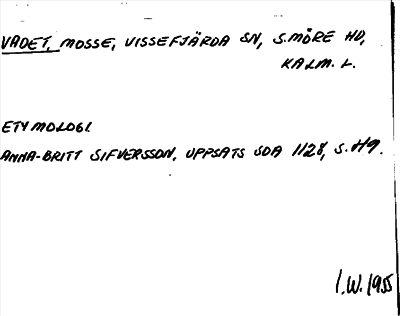 VADET, MOSSE, VISSEFJÄRDA SN, S. MÖRE HD,
KALM. L.
ETYMOLOGI
ANNA-BRITT SIFVERSSON, UPPSATS SOA 1128, S. 49.
I.W. 1955